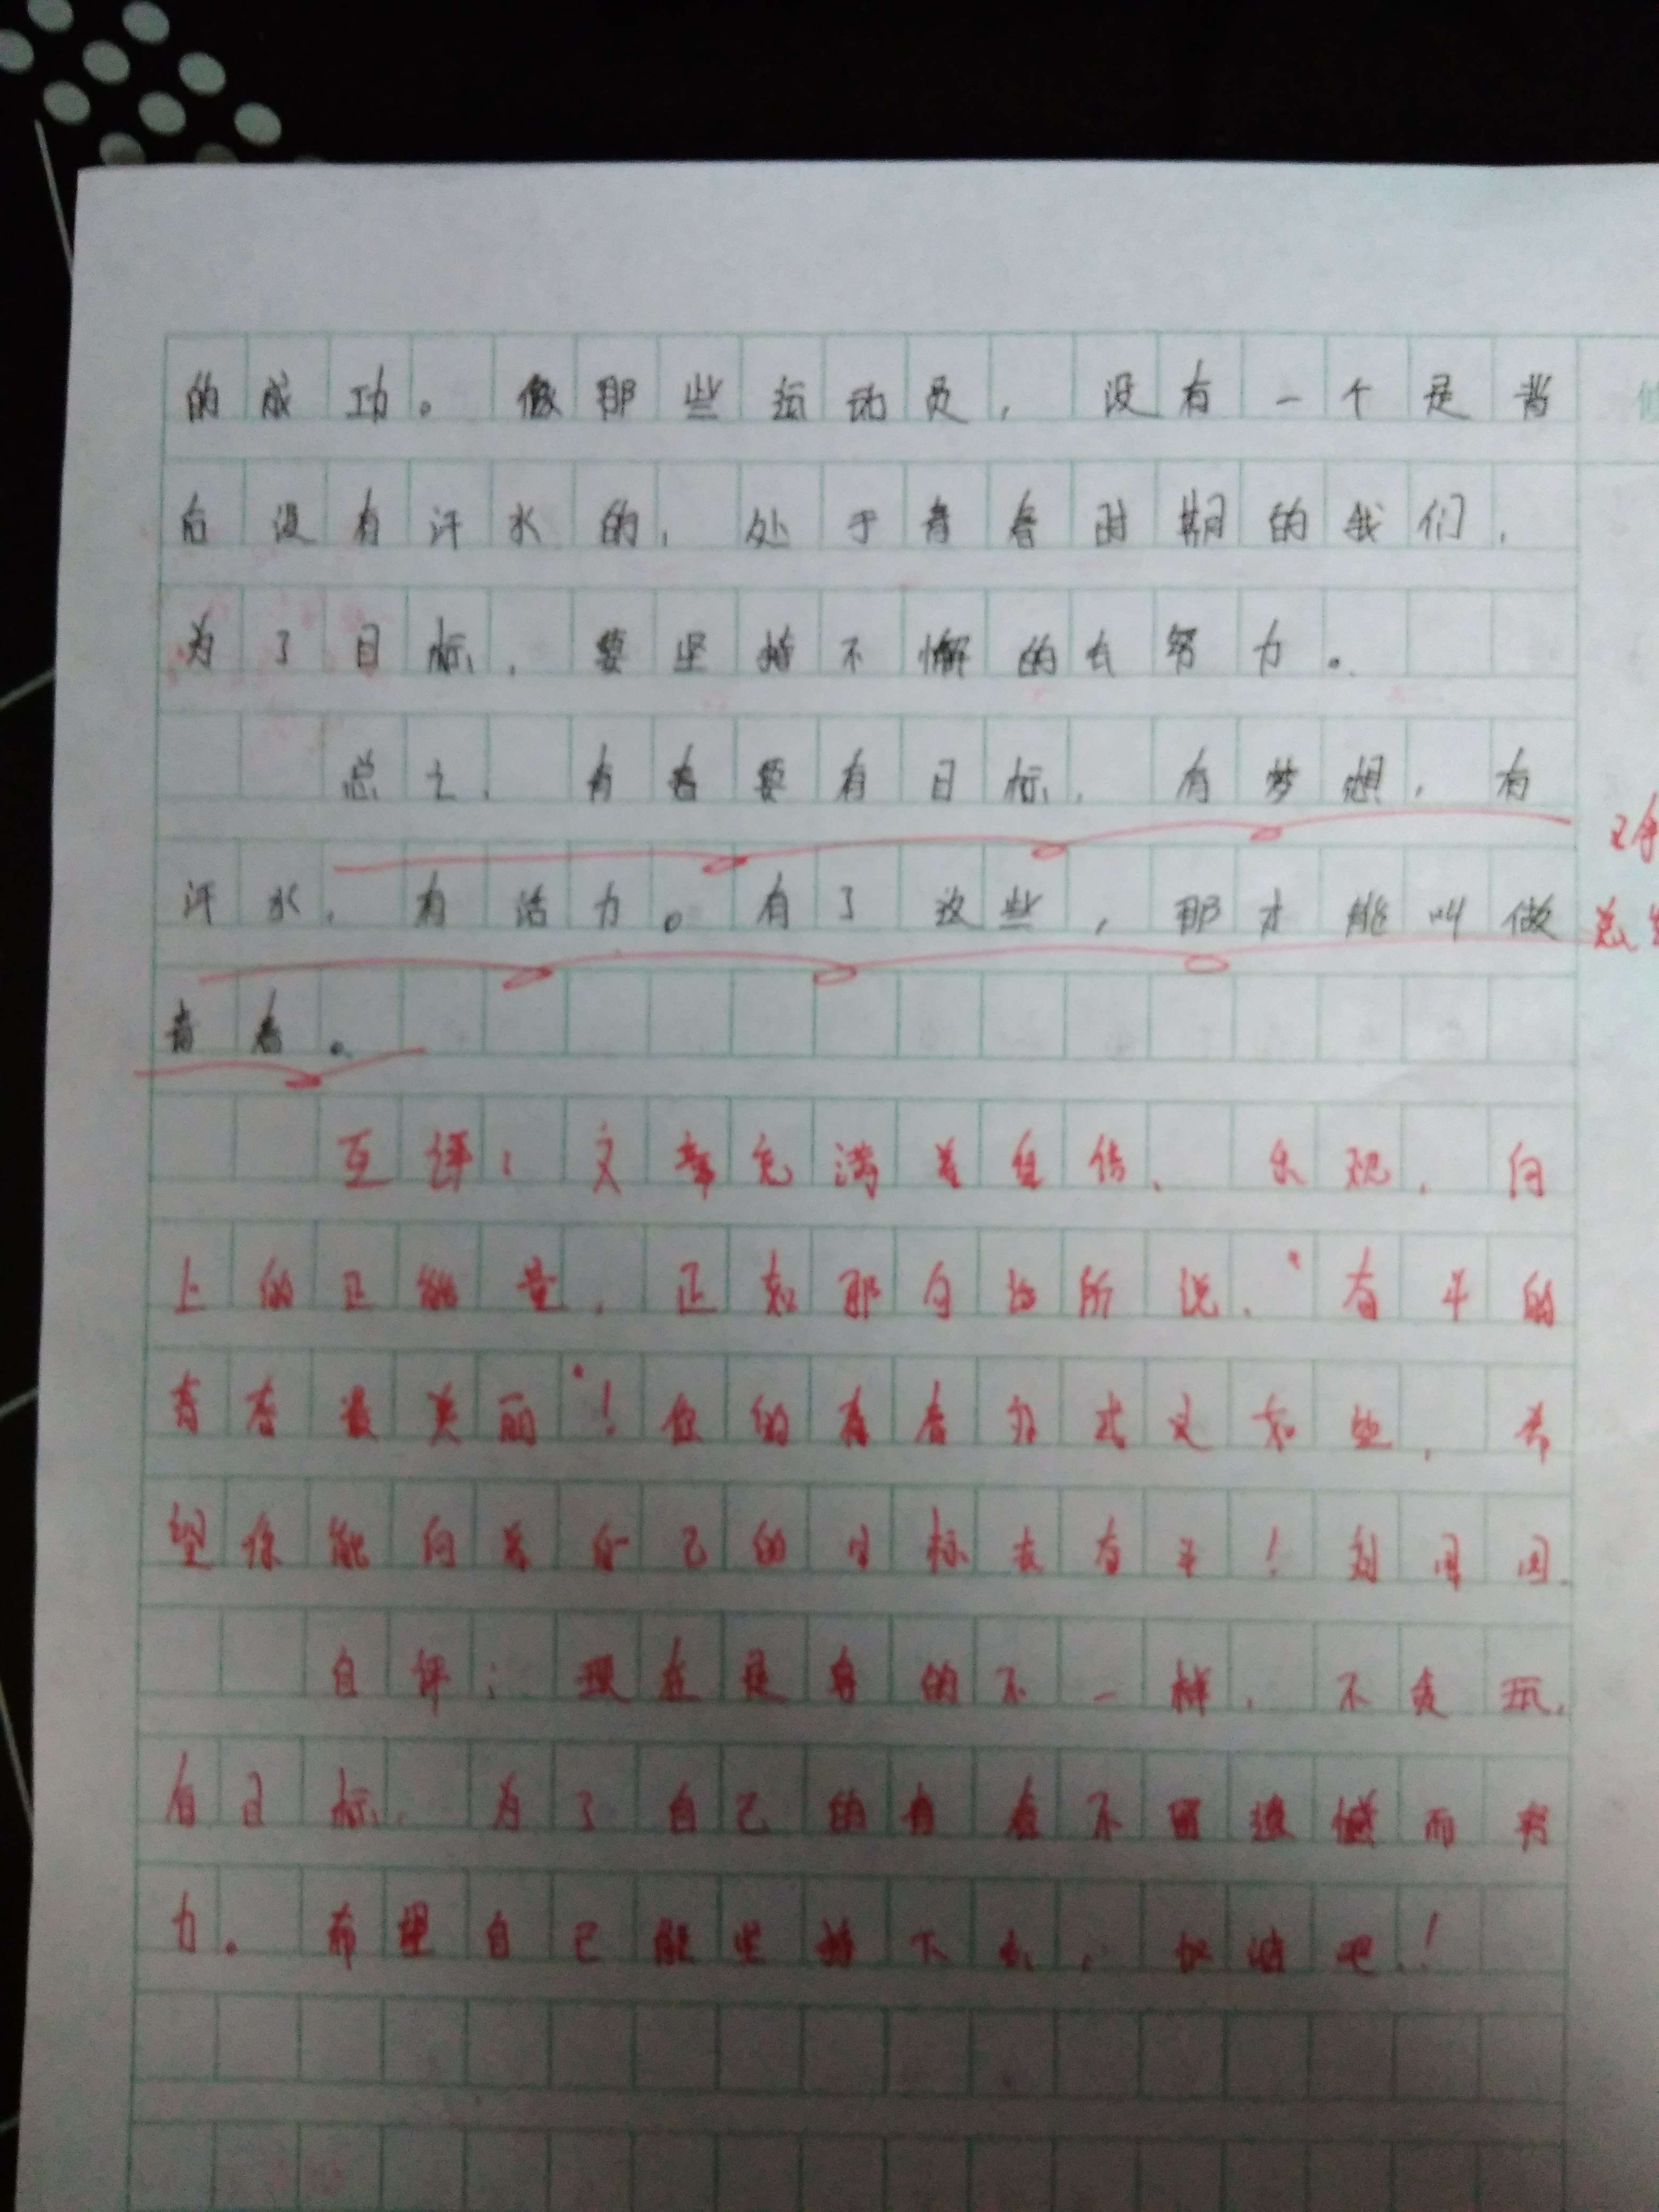 的成功。像那些运动员，没有一个是背
后没有汗水的，处于青春时期的我们，
为了目标，要坚持不懈的去努力。
总之，青春要有目标，有梦想，有
汗水，有活力。有了这些，那才能叫做
青春。
互评：文章充满着自信、乐观、向
上的正能量，正如那句话所说，“奋斗的
青春最美丽”！你的青春方式又如此，希
望你能向着自己的目标去奋斗！刘
自评：现在是真的不一样，不贪玩，
有目标，为了自己的青春不留遗憾而努
力。希望自己能坚持下去，加油吧！